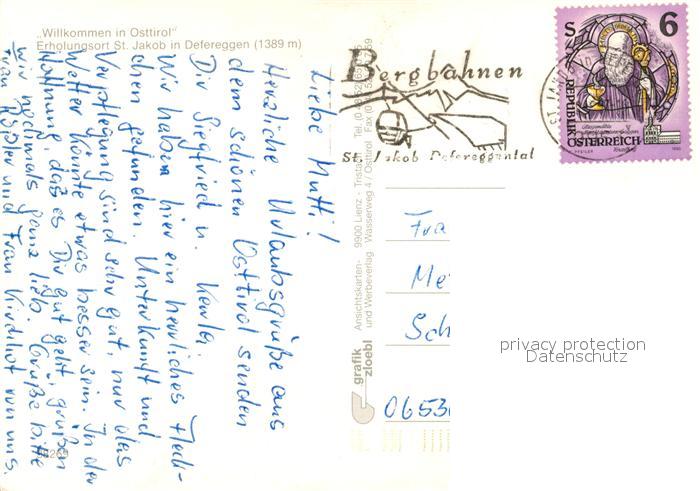 „Willkommen in Osttirol"
Erholungsort St. Jakob in Defereggen (1389 m)
Liebe Mutti!
Herzliche Urlaubsgrüße aus
dem schönen Osttirol senden
Dir Siegfried u. Karla.
Wir haben hier ein herrliches Fleck-
chen gefunden. Unterkunft und
Verpflegung sind sehr gut, nur das
Wetter könnte etwas besser sein. In der
Hoffnung, daß es Dir gut geht, grüßen
wir nochmals ganz lieb. Grüße bitte
Frau und Frau von uns.
grafik
zloebl
Ansichtskarten-
und Werbeverlag
9900 Lienz - Tristach
Wasserweg 4 / Osttirol
Bergbahnen
St. Jakob Defereggental
S 6
REPUBLIK
ÖSTERREICH
Fra
Me
Sch
0653
privacy protection
Datenschutz